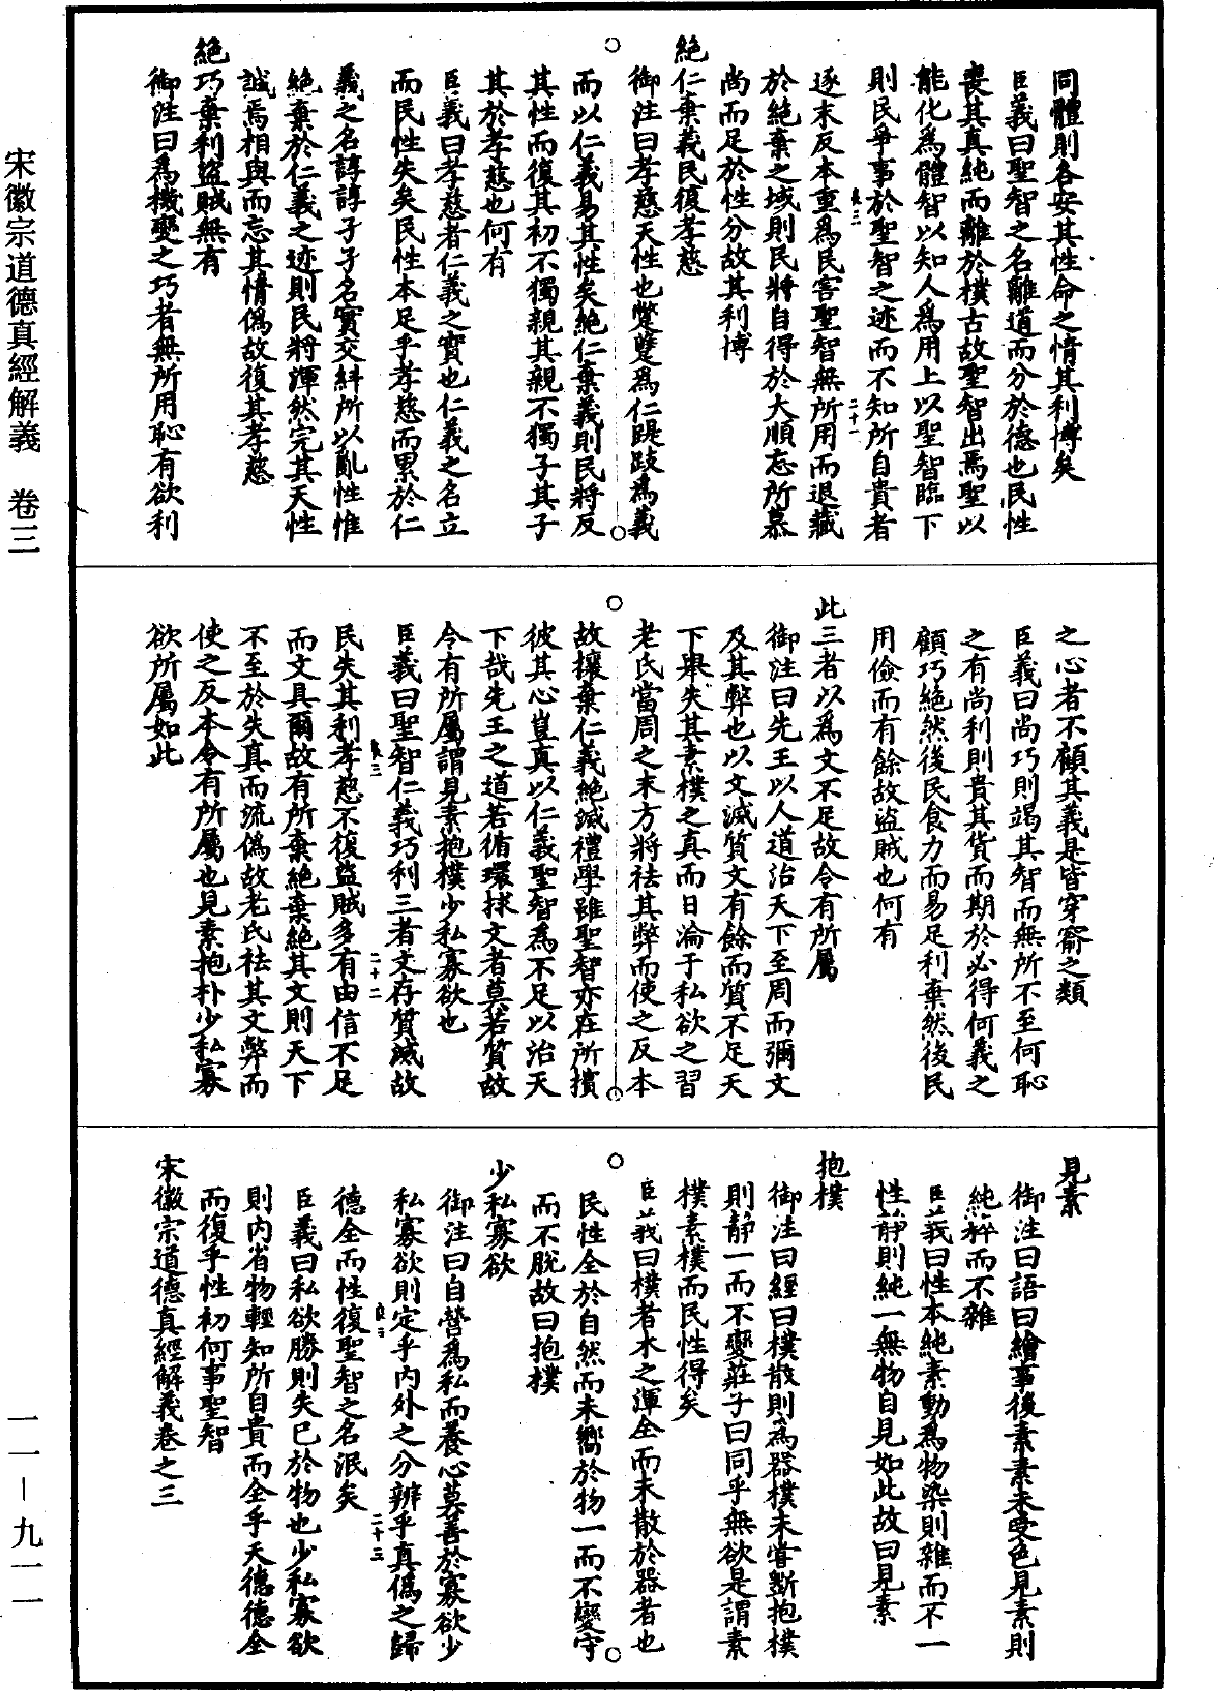 同體則各安其性命之情其利博矣
臣義曰聖智之名離道而分於德也民性
喪其真純而離於樸古故聖智出焉聖以
能化為體智以知人為用上以聖智臨下
則民爭事於聖智之迹而不知所自貴者
逐末反本重為民害聖智無所用而退藏
於絶棄之域則民將自得於大順忘所慕
尚而足於性分故其利博
絶仁棄義民復孝慈
御注曰孝慈天性也蹩躠為仁踶跂為義
而以仁義易其性矣絶仁棄義則民將反
其性而復其初不獨親其親不獨子其子
其於孝慈也何有
臣義曰孝慈者仁義之實也仁義之名立
而民性失矣民性本足乎孝慈而累於仁
義之名諄諄孑孑名實交糾所以亂性惟
絶棄於仁義之迹則民將渾然完其天性
誠焉相與而忘其情偽故復其孝慈
絶巧棄利盜賊無有
御注曰為機變之巧者無所用恥有欲利
之心者不顧其義是皆穿窬之類
臣義曰尚巧則竭其智而無所不至何恥
之有尚利則貴其貨而期於必得何義之
顧巧絶然後民食力而易足利棄然後民
用儉而有餘故盜賊也何有
此三者以為文不足故令有所屬
御注曰先王以人道治天下至周而彌文
及其弊也以文滅質文有餘而質不足天
下舉失其素樸之真而日淪于私欲之習
老氏當周之末方將祛其弊而使之反本
故攘棄仁義絶滅禮學雖聖智亦在所擯
彼其心豈真以仁義聖智為不足以治天
下哉先王之道若循環捄文者莫若質故
令有所屬謂見素抱樸少私寡欲也
臣義曰聖智仁義巧利三者文存質滅故
民失其利孝慈不復盜賊多有由信不足
而文具爾故有所棄絶棄絶其文則天下
不至於失真而流偽故老氏祛其文弊而
使之反本令有所屬也見素抱朴少私寡
欲所屬如此
見素
御注曰語曰繪事後素素未受色見素則
純粹而不雜
臣義曰性本純素動為物染則雜而不一
性靜則純一無物自見如此故曰見素
抱樸
御注曰經曰樸散則為器樸未嘗斲抱樸
則靜一而不變莊子曰同乎無欲是謂素
樸素樸而民性得矣
臣義曰樸者木之渾全而未散於器者也
民性全於自然而未嚮於物一而不變守
而不脫故曰抱樸
少私寡欲
御注曰自營為私而養心莫善於寡欲少
私寡欲則定乎内外之分辨乎真偽之歸
德全而性復聖智之名泯矣
臣義曰私欲勝則失已於物也少私寡欲
則内省物輕知所自貴而全乎天德德全
而復乎性初何事聖智
宋徽宗道德真經解義卷之三
宋徽宗道德真經解義　卷三
一一－九一一
二十一
二十二
二十三